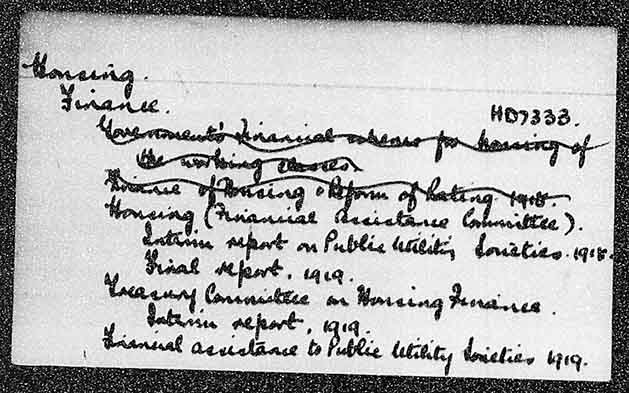 Housing.
Finance.
HD7333.
Government's Financial scheme for housing of
the working classes.
Finance of Housing & Reform of Rating 1918.
Housing (Financial Assistance Committee).
Interim report on Public Utility Societies. 1918.
Final report, 1919.
Treasury Committee on Housing Finance.
Interim report, 1919.
Financial assistance to Public Utility Societies 1919.